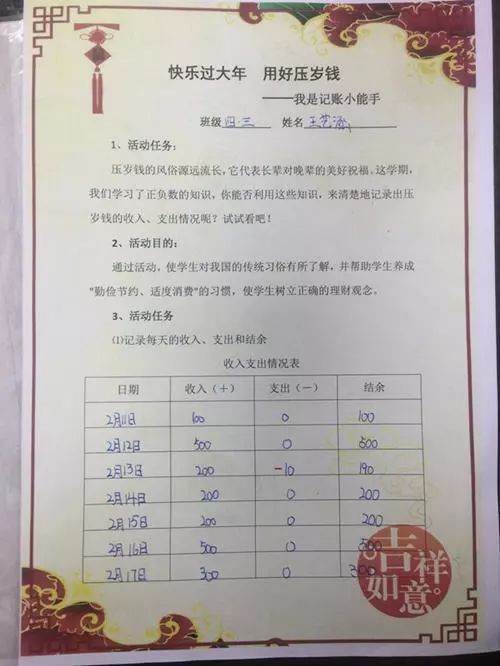 快乐过大年 用好压岁钱
——我是记账小能手
班级 四.三 姓名 王艺涵
1、活动任务：
压岁钱的风俗源远流长，它代表长辈对晚辈的美好祝福。这学期，
我们学习了正负数的知识，你能否利用这些知识，来清楚地记录出压
岁钱的收入、支出情况呢？试试看吧！
2、活动目的：
通过活动，使学生对我国的传统习俗有所了解，并帮助学生养成
"勤俭节约、适度消费"的习惯，使学生树立正确的理财观念。
3、活动任务
⑴记录每天的收入、支出和结余
收入支出情况表
日期 收入（+） 支出（—） 结余
2月11日 100 0 100
2月12日 500 0 500
2月13日 200 -10 190
2月14日 200 0 200
2月15日 200 0 200
2月16日 500 0 500
2月17日 300 0 300
吉祥
如意